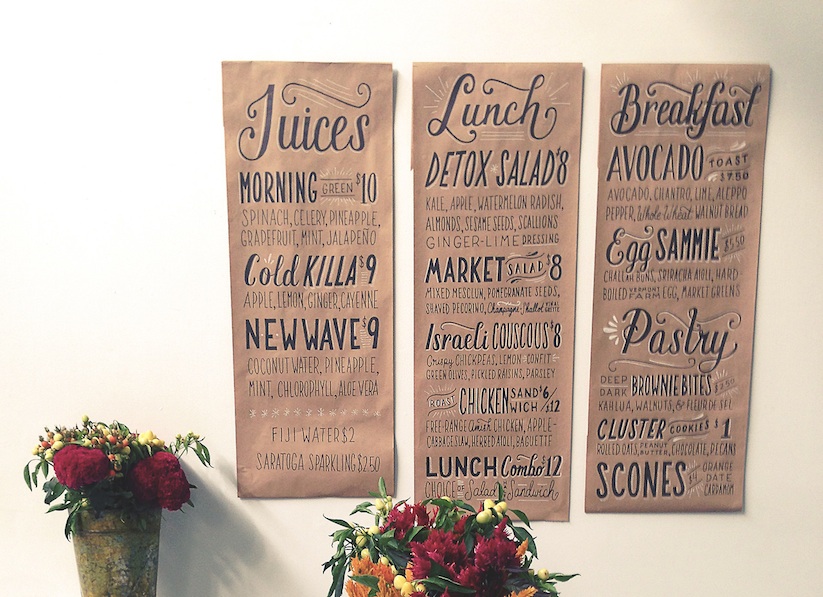 Juices
MORNING GREEN $10
SPINACH, CELERY, PINEAPPLE,
GRAPEFRUIT, MINT, JALAPEÑO
Cold KILLA $9
APPLE, LEMON, GINGER, CAYENNE
NEW WAVE $9
COCONUT WATER, PINEAPPLE,
MINT, CHLOROPHYLL, ALOE VERA
FIJI WATER $2
SARATOGA SPARKLING $2.50
Lunch
DETOX SALAD $8
KALE, APPLE, WATERMELON RADISH,
ALMONDS, SESAME SEEDS, SCALLIONS
GINGER-LIME DRESSING
MARKET SALAD $8
MIXED MESCLUN, POMEGRANATE SEEDS,
SHAVED PECORINO, Champagne-Shallot VINAIGRETTE
Israeli COUSCOUS $8
Crispy CHICKPEAS, LEMON CONFIT
GREEN OLIVES, PICKLED RAISINS, PARSLEY
ROAST CHICKEN SANDWICH $6/$12
FREE-RANGE Amish CHICKEN, APPLE-
CABBAGE SLAW, HERBED AIOLI, BAGUETTE
LUNCH Combo $12
CHOICE OF Salad & Sandwich
Breakfast
AVOCADO TOAST $7.50
AVOCADO, CILANTRO, LIME, ALEPPO
PEPPER, Whole Wheat WALNUT BREAD
Egg SAMMIE $5.50
CHALLAH BUNS, SRIRACHA AIOLI, HARD-
BOILED VERMONT FARM EGG, MARKET GREENS
Pastry
DEEP DARK BROWNIE BITES $2.50
KAHLUA, WALNUTS, & FLEUR DE SEL
CLUSTER COOKIES $1
ROLLED OATS, PEANUT BUTTER, CHOCOLATE, PECANS
SCONES $4 ORANGE DATE CARDAMOM